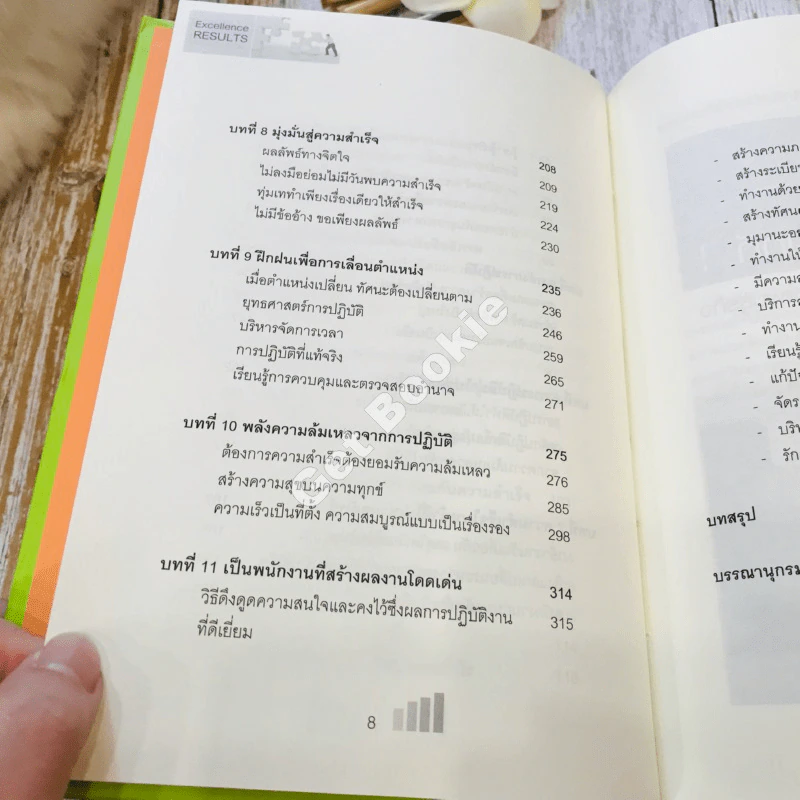 Excellence
RESULTS
บทที่ 8 มุ่งมั่นสู่ความสำเร็จ 208
ผลลัพธ์ทางจิตใจ 209
ไม่ลงมือย่อมไม่มีวันพบความสำเร็จ 219
ทุ่มเททำเพียงเรื่องเดียวให้สำเร็จ 224
ไม่มีข้ออ้าง ขอเพียงผลลัพธ์ 230
บทที่ 9 ฝึกฝนเพื่อการเลื่อนตำแหน่ง 235
เมื่อตำแหน่งเปลี่ยน ทัศนะต้องเปลี่ยนตาม 236
ยุทธศาสตร์การปฏิบัติ 246
บริหารจัดการเวลา 259
การปฏิบัติที่แท้จริง 265
เรียนรู้การควบคุมและตรวจสอบอำนาจ 271
บทที่ 10 พลังความล้มเหลวจากการปฏิบัติ 275
ต้องการความสำเร็จต้องยอมรับความล้มเหลว 276
สร้างความสุขบนความทุกข์ 285
ความเร็วเป็นที่ตั้ง ความสมบูรณ์แบบเป็นเรื่องรอง 298
บทที่ 11 เป็นพนักงานที่สร้างผลงานโดดเด่น 314
วิธีดึงดูดความสนใจและคงไว้ซึ่งผลการปฏิบัติงาน 315
ที่ดีเยี่ยม
8
Get Bookie
- สร้างความภ
- สร้างระเบีย
- ทำงานด้วย
- สร้างทัศน
- มุมานะอ
- ทำงานให้
- มีความส
- บริการ
- ทำงาน
- เรียนรู้
- แก้ปั
- จัดร
- บริห
- รัก
บทสรุป
บรรณานุกรม